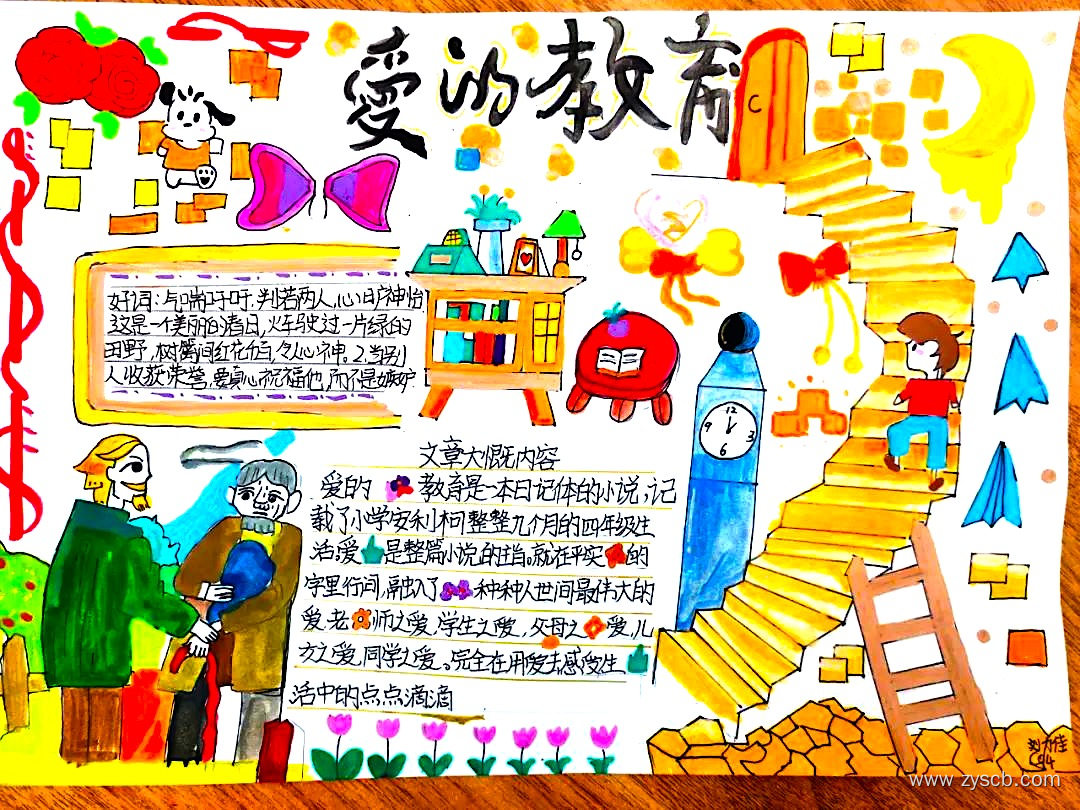 爱的教育
C
好词:气喘吁吁,判若两人,心旷神怡
这是一个美丽的清日,火车驶过一片绿的
田野,树篱间红花伍,令心神。2.当别
人收获荣誉,要真心祝福他,而不是嫉妒
文章大慨内容
爱的教育是一本日记体的小说,记
载了小学安利柯整整九个月的四年级生
活,爱是整篇小说的主旨。就在平实的
字里行间,融入了种种人世间最伟大的
爱,老师之爱,学生之爱,父母之爱,儿
方之爱,同学之爱。完全在用爱去感受生
活中的点点滴滴
12
9 3
6
www.zyscb.com